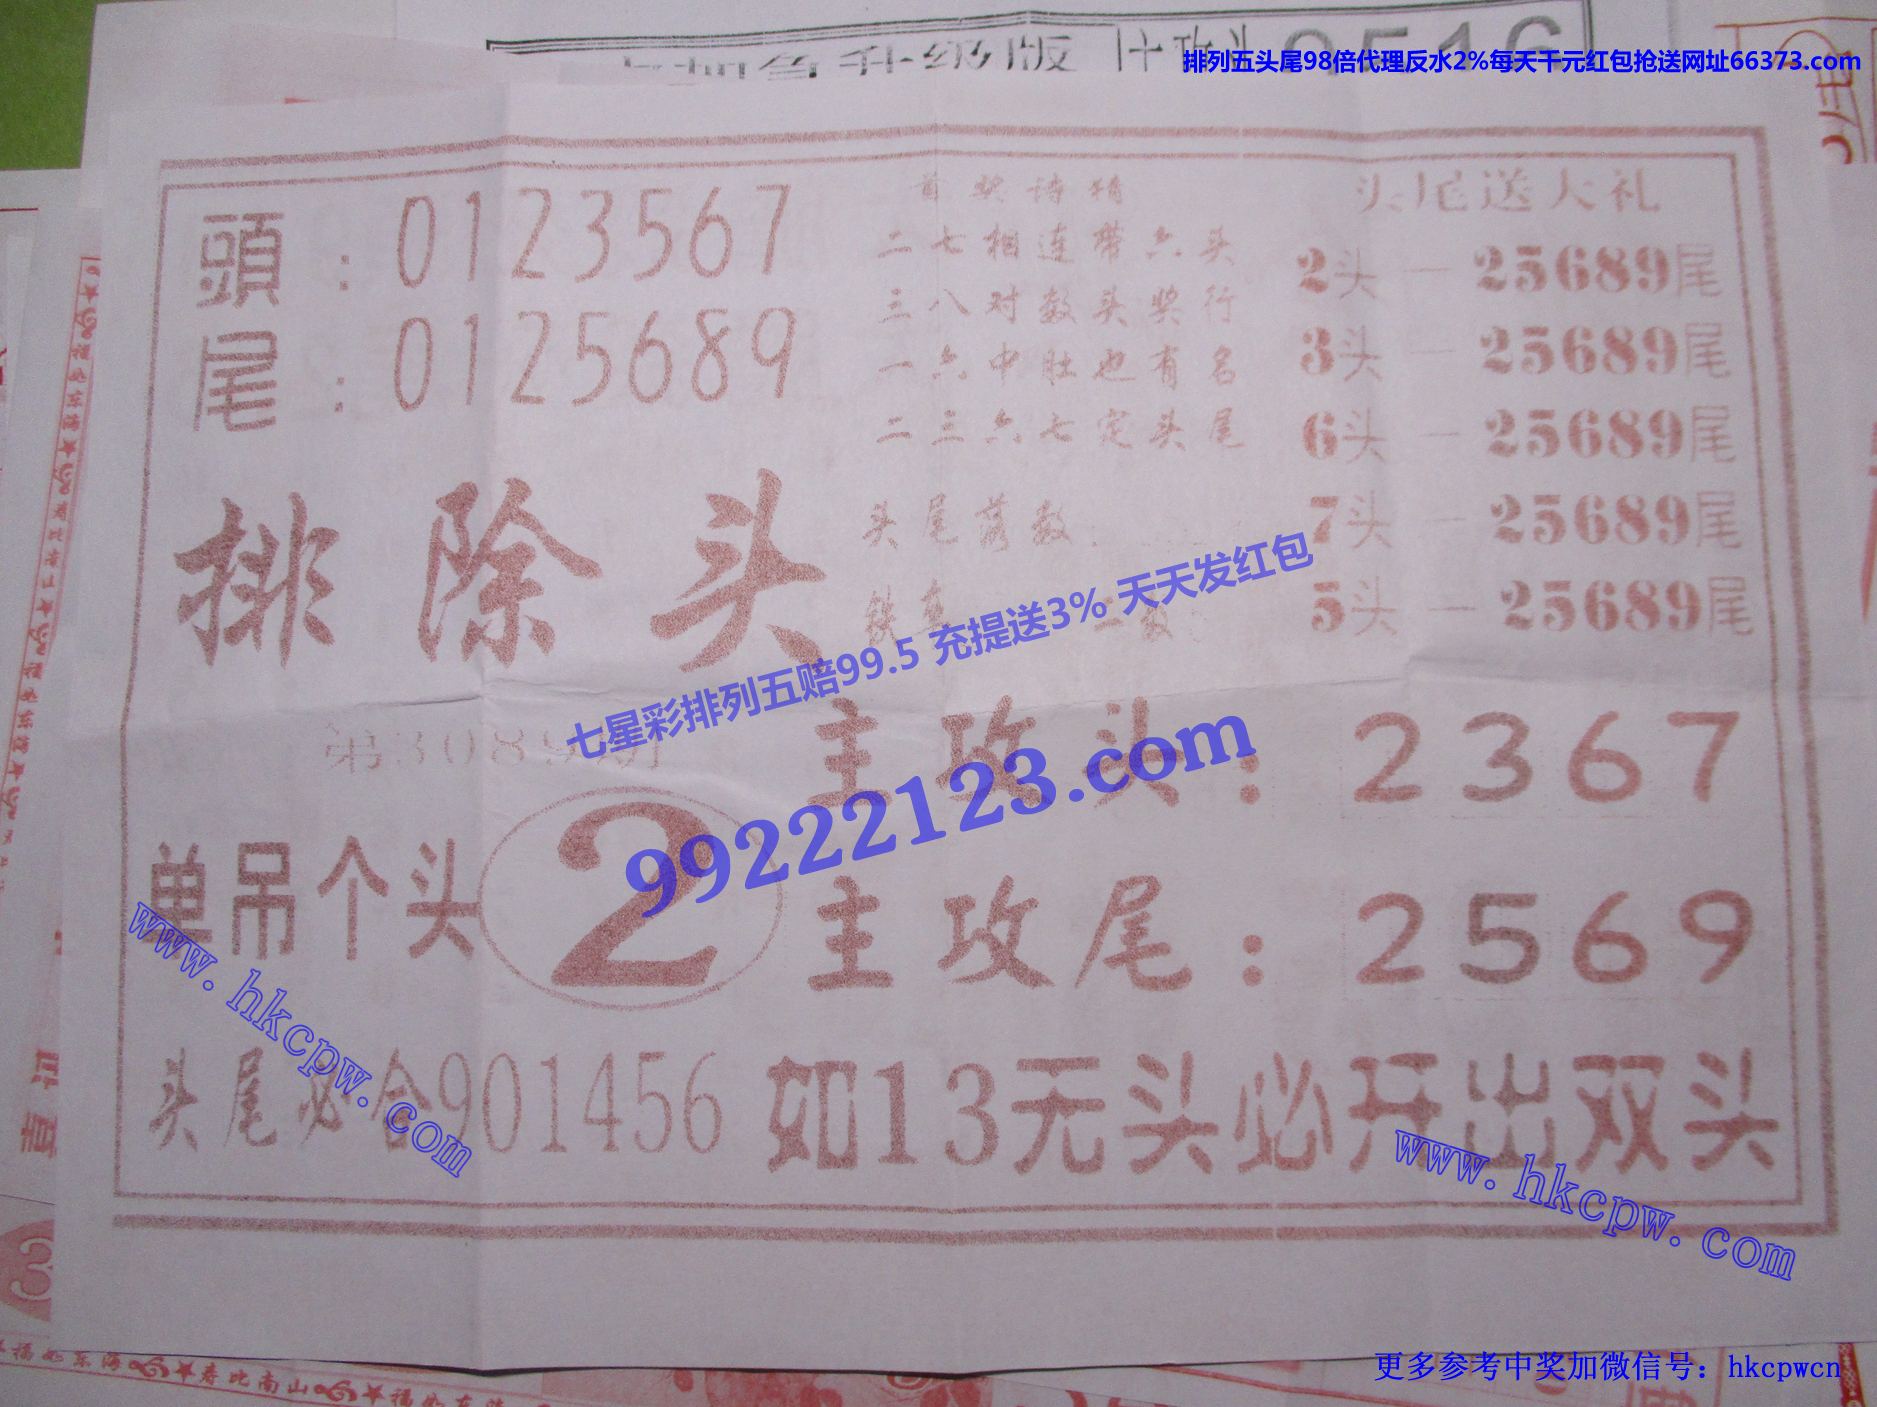 排列五头尾98倍代理反水2%每天千元红包抢送网址66373.com
頭：0123567
尾：0125689
首奖诗猜
二七相连带六头
三八对数头奖行
一六中肚也有名
二三六七定头尾
头尾落数：
头尾送大礼
2头－25689尾
3头－25689尾
6头－25689尾
7头－25689尾
5头－25689尾
排除头
七星彩排列五赔99.5 充提送3% 天天发红包
99222123.com
第3089期
单吊个头 2
主攻头：2367
主攻尾：2569
头尾必合901456 如13无头必开出双头
www.hkcpw.com
www.hkcpw.com
更多参考中奖加微信号：hkcpwcn
寿比南山